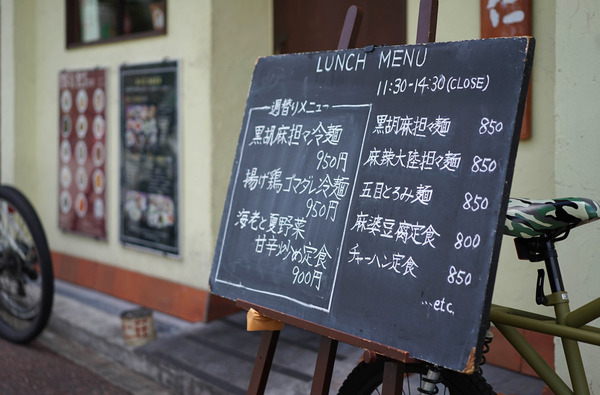 LUNCH MENU
11:30-14:30(CLOSE)
週替りメニュー
黒胡麻担々冷麺
950円
揚げ鶏ゴマダレ冷麺
950円
海老と夏野菜
甘辛炒め定食
900円
黒胡麻担々麺 850
麻辣大陸担々麺 850
五目とろみ麺 850
麻婆豆腐定食 800
チャーハン定食 850
...etc.